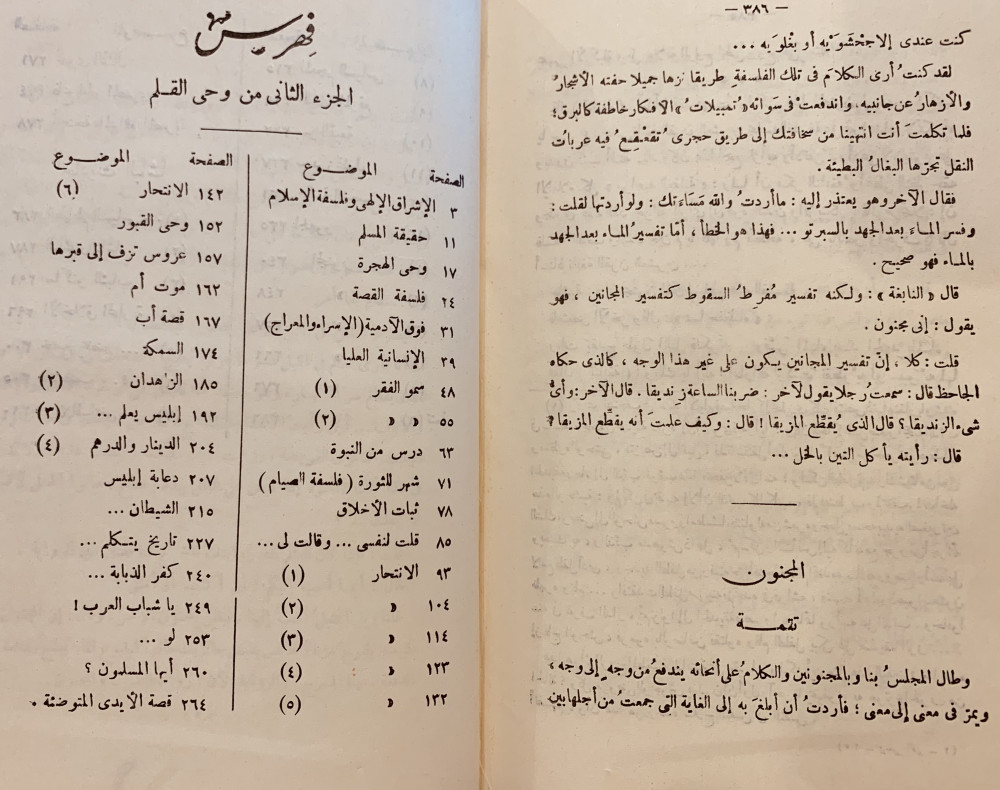 — ٣٨٦ —
كنت عندى إلا جحْشَوَيْه أو بغْلوَيه ...
لقد كنتُ أرى الكلامَ فى تلك الفلسفةِ طريقا نزها جميلا حفته الأشجارُ
والأزهارُ عن جانبيه، واندفعتْ فى سوائه «تُمبيلات» الأفكار خاطفة كالبرق؛
فلما تكلمتَ أنت انتهينا من سخافتك إلى طريق حجرى تُقعْقِعُ فيه عرباتُ
النقل تجرّها البغالُ البطيئة.
فقال الآخر وهو يعتذر إليه: ما أردتُ والله مَسَاءَتك: ولو أردتها لقلت:
وفسر الماءَ بعد الجهد بالسبرتو... فهذا هو الخطأ، أمّا تفسيرُ الماء بعد الجهد
بالماء فهو صحيح.
قال «النابغة»: ولكنه تفسير مُفرِطُ السقوط كتفسير المجانين، فهو
يقول: إنى مجنون.
قلت: كلا، إنّ تفسير المجانين يكون على غير هذا الوجه، كالذى حكاه
الجاحظ قال: سمعت رُجلا يقول لآخر: ضربنا الساعة زِنديقا. قال الآخر: وأىُّ
شىء الزنديقا؟ قال الذى يُقطّع المزيقا! قال: وكيف علمتَ أنه يقطّع المزيقا؟
قال: رأيته يأكل التين بالخل...
المجنون
تتمة
وطال المجلسُ بنا وبالمجنونين والكلامُ على أنحائه يندفعُ من وجهٍ إلى وجه،
ويمرّ فى معنى إلى معنى؛ فأردتُ أن أبلغَ به إلى الغاية التى جمعتُ من أجلها بين
فهرس
الجزء الثانى من وحى القلم
الصفحة الموضوع
٣ الإشراق الإلهى وفلسفة الإسلام
١١ حقيقة المسلم
١٧ وحى الهجرة
٢٤ فلسفة القصة
٣١ فوق الآدمية (الإسراء والمعراج)
٣٩ الإنسانية العليا
٤٨ سمو الفقر (١)
٥٥ » » (٢)
٦٣ درس من النبوة
٧١ شهر للثورة (فلسفة الصيام)
٧٨ ثبات الأخلاق
٨٥ قلت لنفسى ... وقالت لى ...
٩٣ الانتحار (١)
١٠٤ » (٢)
١١٤ » (٣)
١٢٣ » (٤)
١٣٢ » (٥)
الصفحة الموضوع
١٤٢ الانتحار (٦)
١٥٢ وحى القبور
١٥٧ عروس تزف إلى قبرها
١٦٢ موت أم
١٦٧ قصة أب
١٧٤ السمكة
١٨٥ الزاهدان (٢)
١٩٢ إبليس يعلم ... (٣)
٢٠٤ الدينار والدرهم (٤)
٢٠٧ دعابة إبليس
٢١٥ الشيطان ...
٢٢٧ تاريخ يتكلم ...
٢٤٠ كفر الذبابة ...
٢٤٩ يا شباب العرب!
٢٥٣ لو ...
٢٦٠ أيها المسلمون؟
٢٦٤ قصة الأيدى المتوضئة.